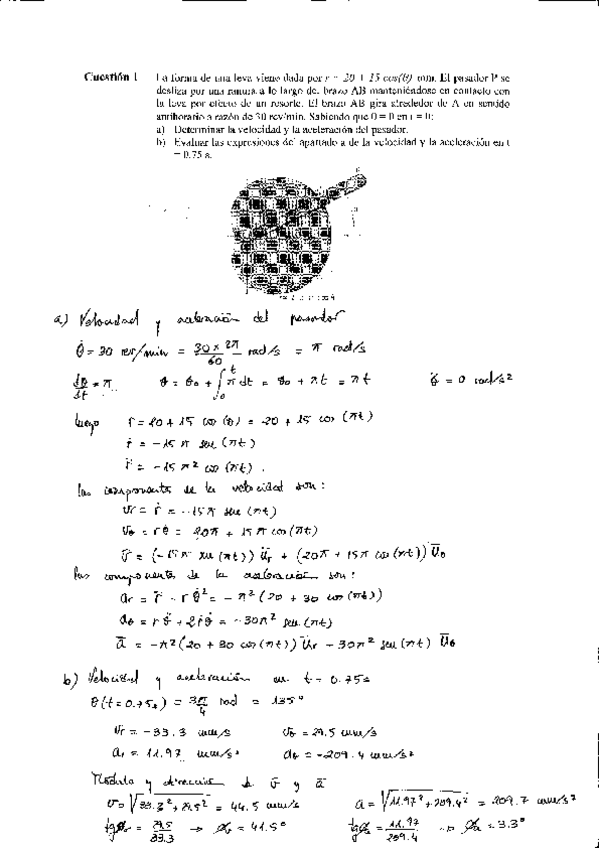 Cuestión 1 La forma de una leva viene dada por r = 20 + 15 cos(θ) mm. El pasador P se
desliza por una ranura a lo largo del brazo AB manteniéndose en contacto con
la leva por efecto de un resorte. El brazo AB gira alrededor de A en sentido
antihorario a razón de 30 rev/min. Sabiendo que θ = 0 en t = 0:
a) Determinar la velocidad y la aceleración del pasador.
b) Evaluar las expresiones del apartado a de la velocidad y la aceleración en t
= 0.75 s.
a) Velocidad y aceleración del pasador
θ̇ = 30 rev/min = 30 × 2π / 60 rad/s = π rad/s
dθ/dt = π θ = θ₀ + ∫₀ᵗ π dt = θ₀ + πt = πt θ̈ = 0 rad/s²
luego r = 20 + 15 cos (θ) = 20 + 15 cos (πt)
ṙ = -15 π sen (πt)
r̈ = -15 π² cos (πt).
las componentes de la velocidad son:
vr = ṙ = -15π sen (πt)
vθ = r θ̇ = 20π + 15π cos(πt)
v̄ = (-15π sen (πt)) ūr + (20π + 15π cos (πt)) ūθ
las componentes de la aceleración son:
ar = r̈ - r θ̇² = -π² (20 + 30 cos (πt))
aθ = r θ̈ + 2ṙθ̇ = -30π² sen (πt)
ā = -π² (20 + 30 cos (πt)) ūr - 30π² sen (πt) ūθ
b) Velocidad y aceleración en t = 0.75s
θ(t=0.75s) = 3π/4 rad = 135°
vr = -33.3 mm/s vθ = 29.5 mm/s
ar = 11.97 mm/s² aθ = -209.4 mm/s²
Módulo y dirección de v̄ y ā
v = √(33.3² + 29.5²) = 44.5 mm/s a = √(11.97² + 209.4²) = 209.7 mm/s²
tgαv = 29.5/33.3 → αv = 41.5° tgαa = 11.97/209.4 → αa = 3.3°